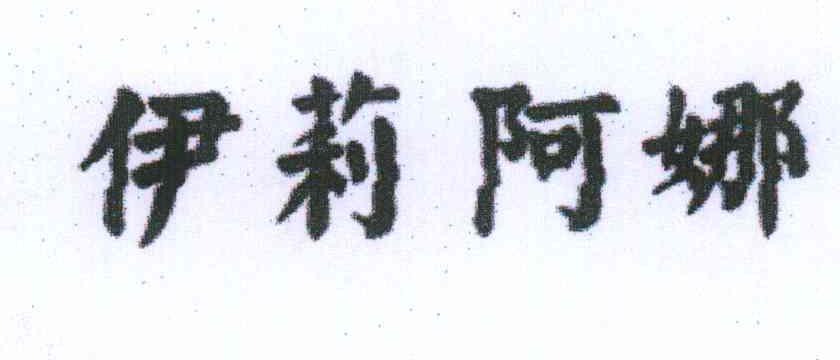 伊莉阿娜